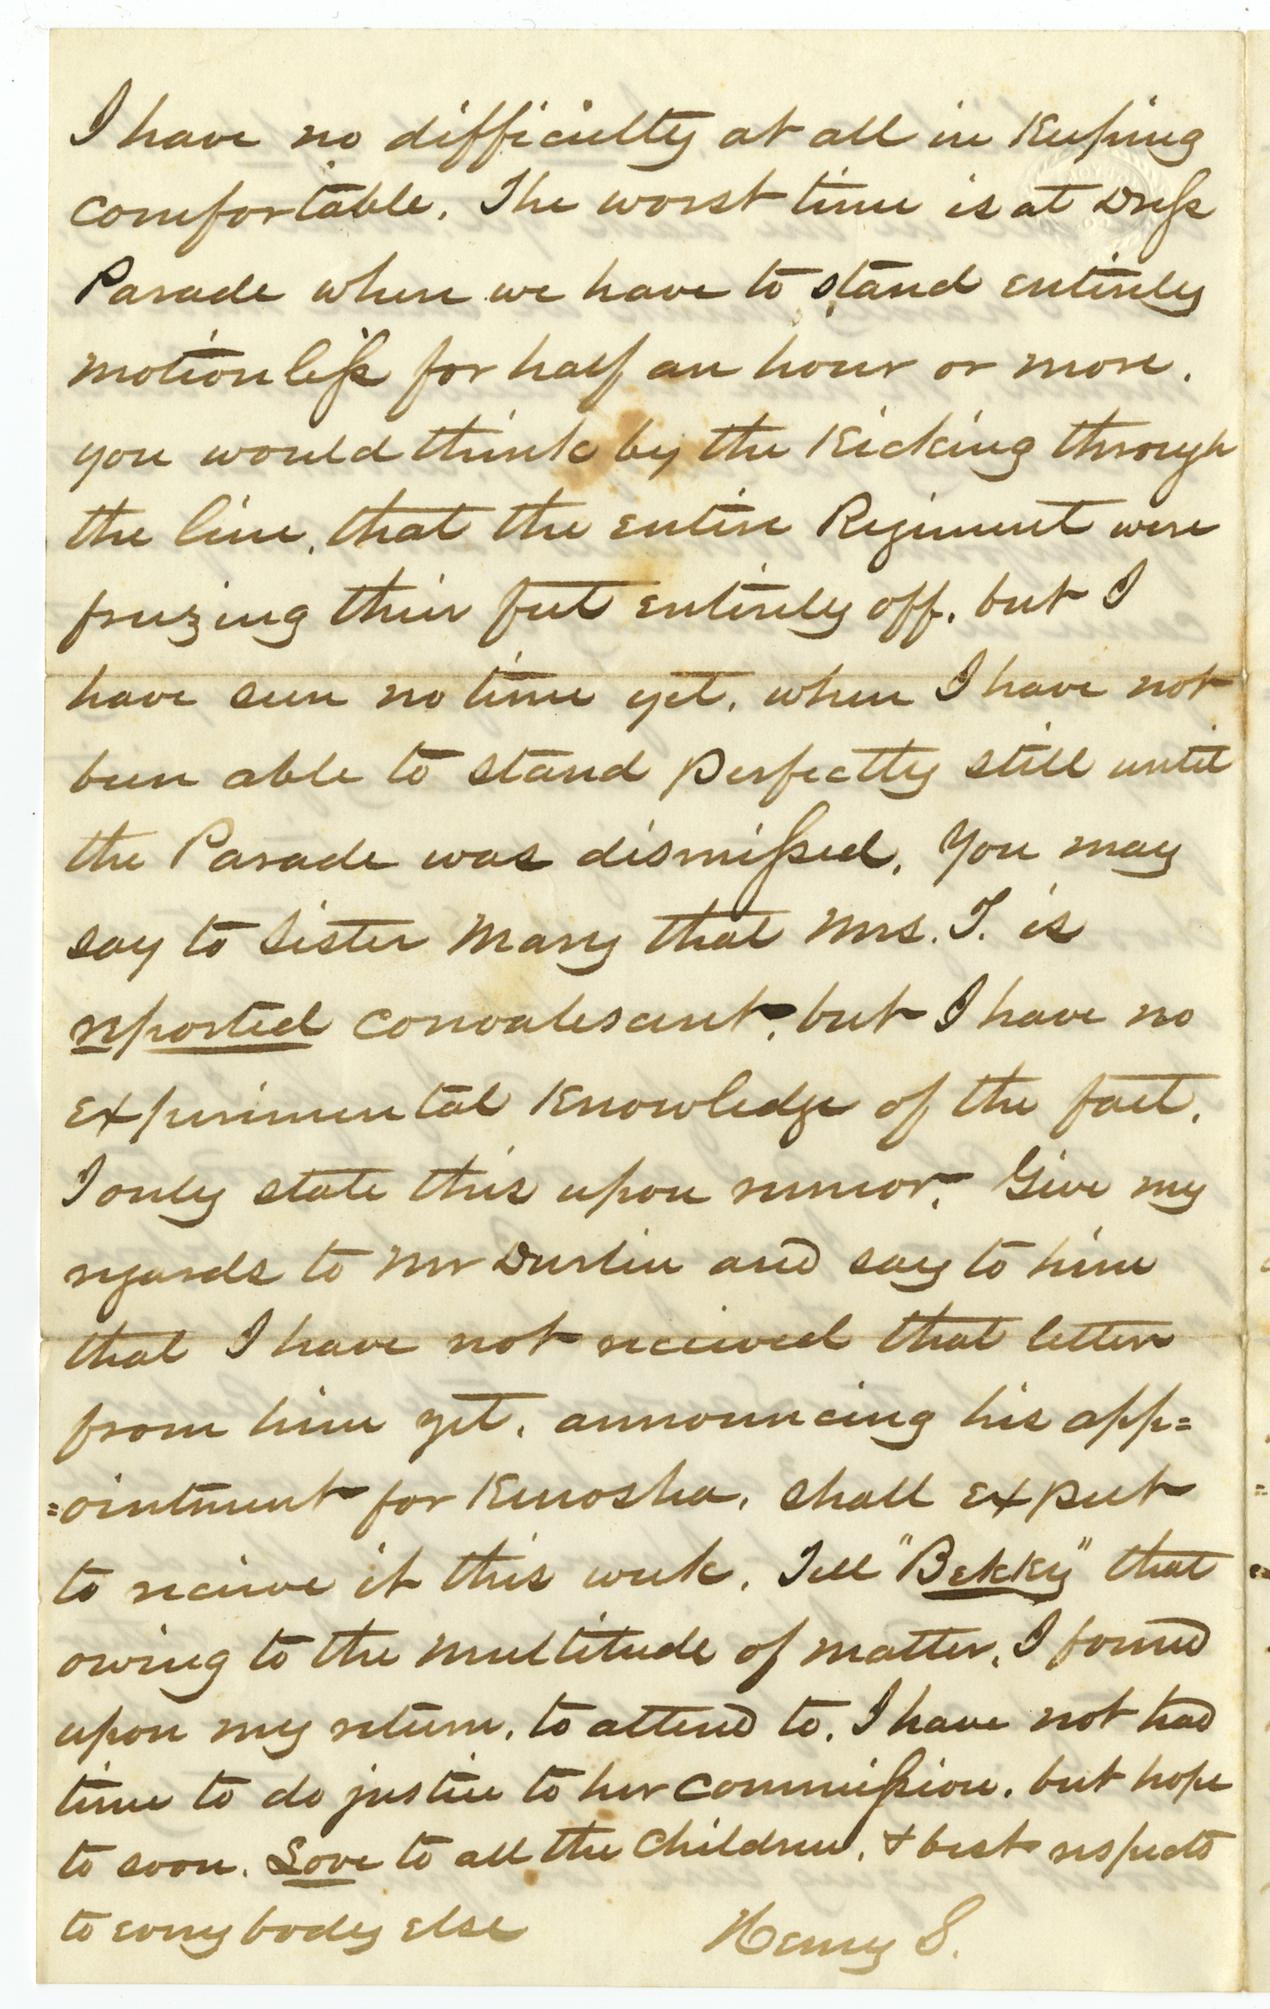 I have no difficulty at all in Keeping
comfortable. The worst time is at Dress
Parade where we have to stand entirely
motionless for half an hour or more.
you would think by the Kicking through
the line, that the entire Regiment were
freezing their feet entirely off, but I
have seen no time yet, when I have not
been able to stand perfectly still until
the Parade was dismissed. You may
say to Sister Mary that Mrs. T. is
reported convalescent, but I have no
experimental Knowledge of the fact.
I only state this upon rumor. Give my
regards to Mr Durlin and say to him
that I have not received that letter
from him yet, announcing his app=
=ointment for Kenosha, shall expect
to receive it this week. Tell "Bekky" that
owing to the multitude of matter, I found
upon my return, to attend to, I have not had
time to do justice to her commission, but hope
to soon. Love to all the Children, & best respects
to every body else
Henry S.